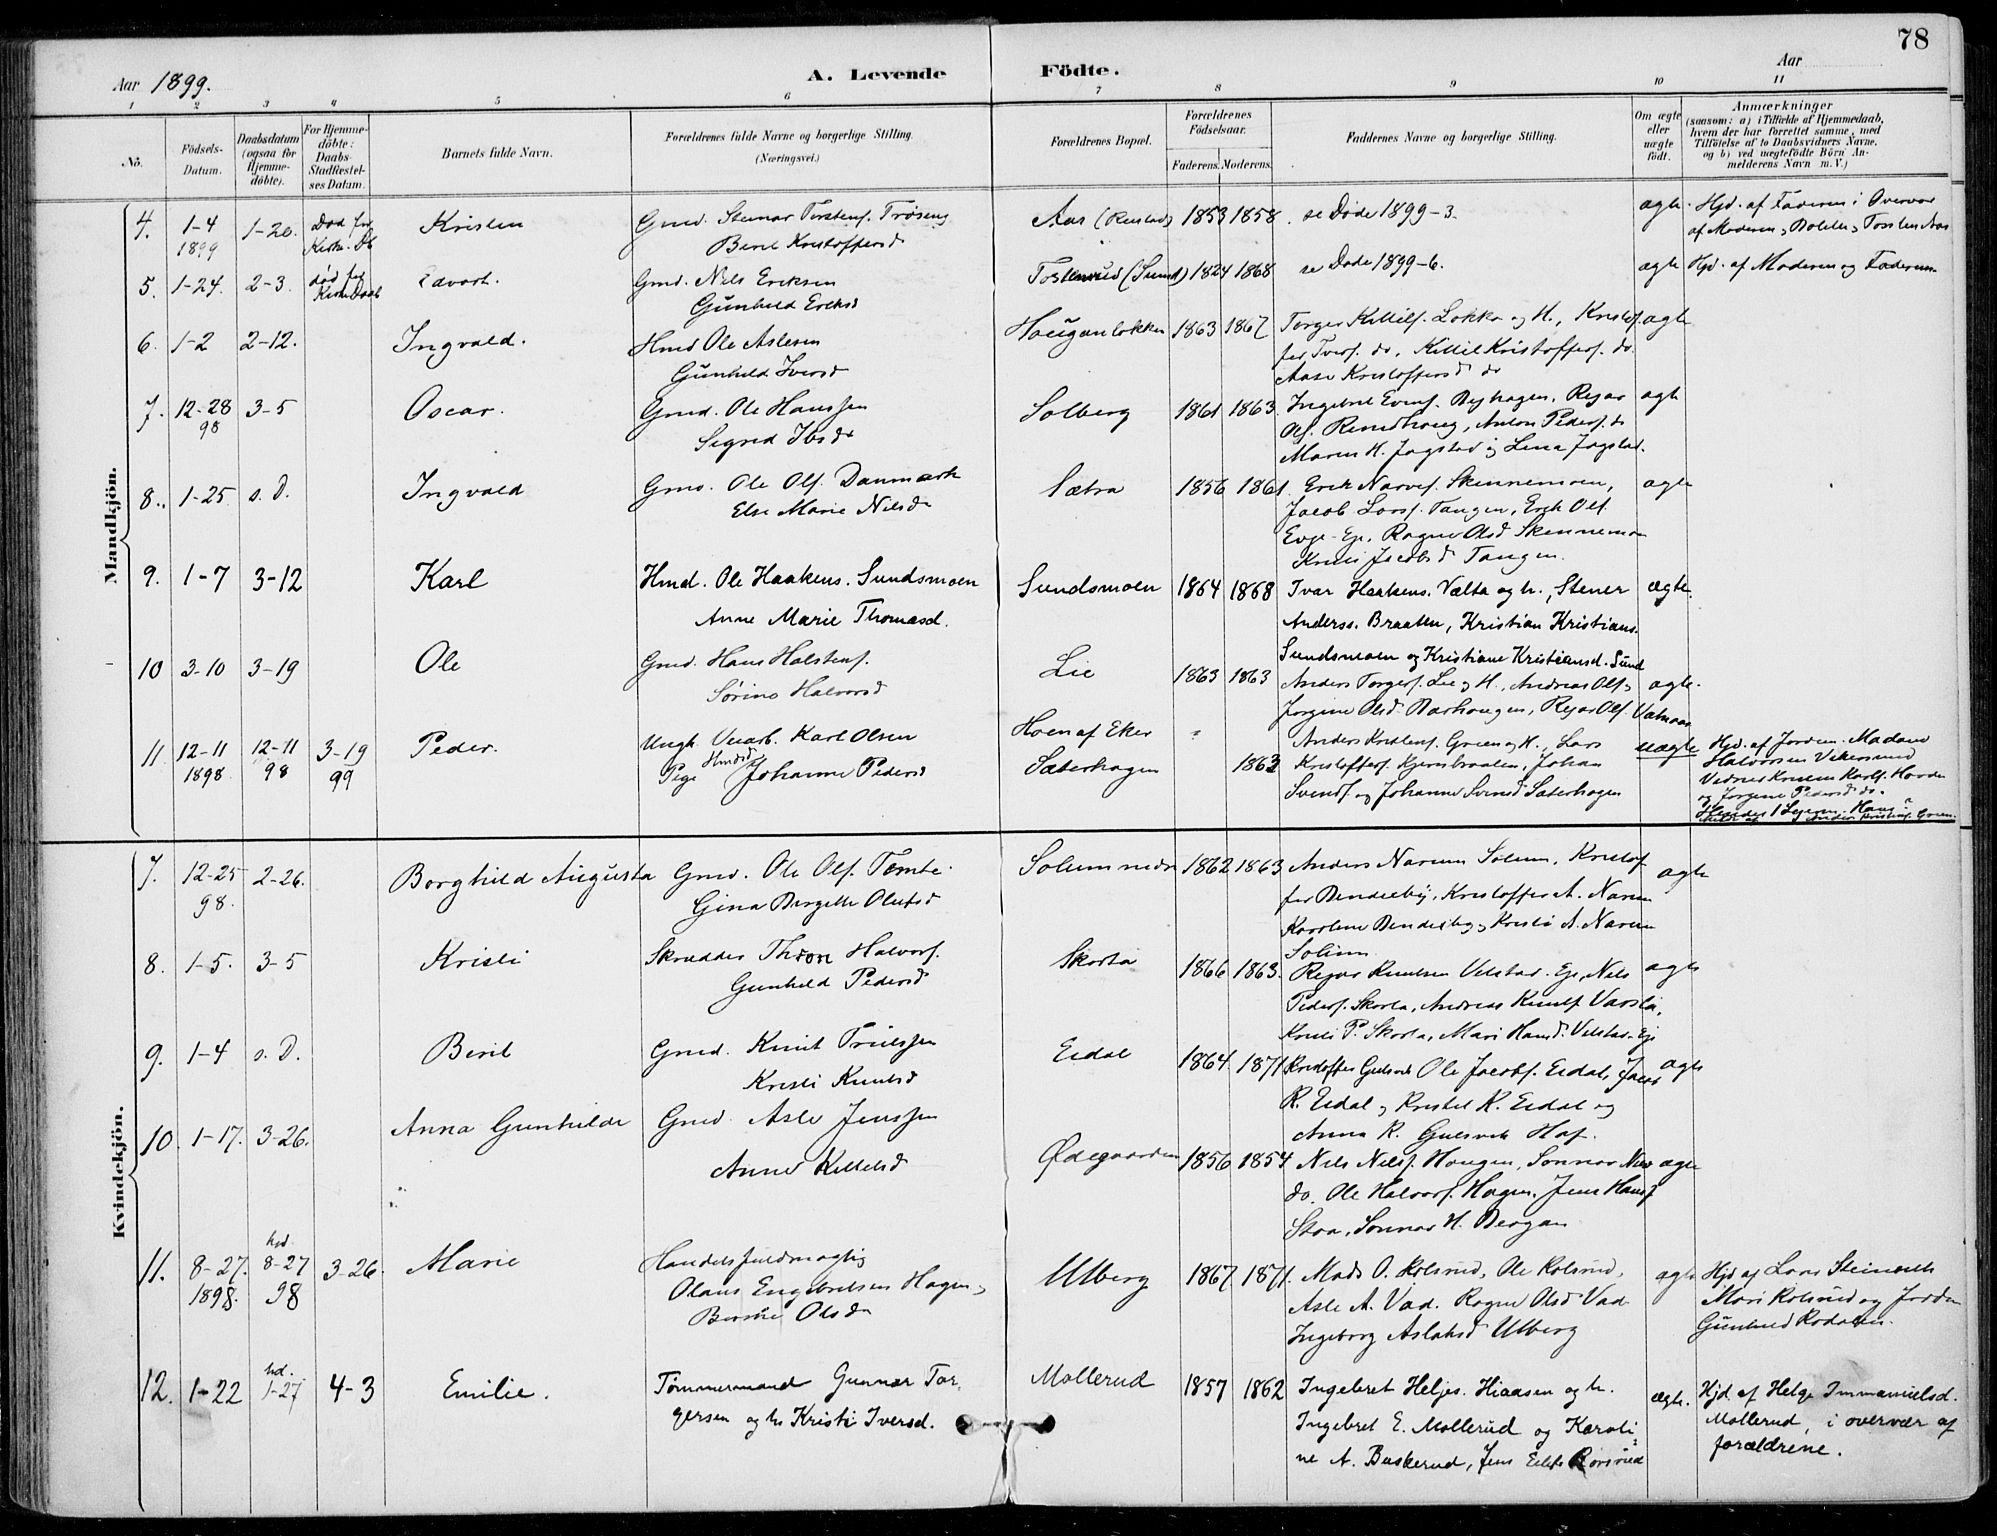 78
Aar 1899.
A. Levende Födte.
Aar
1 2 3 4 5 6 7 8 9 10 11
No.
Födsels-Datum.
Daabsdatum (ogsaa for Hjemme-döbte).
For Hjemme-döbte: Daabs-Stadfæstel-ses Datum.
Barnets fulde Navn.
Forældrenes fulde Navne og borgerlige Stilling.
(Næringsvei.)
Forældrenes Bopæl.
Forældrenes Födselsaar.
Faderens. Moderens.
Faddernes Navne og borgerlige Stilling.
Om ægte eller uægte födt.
Anmærkninger
(saasom: a) i Tilfælde af Hjemmedaab,
hvem der har forrettet samme, med
Tilföielse af to Daabsvidners Navne,
og b) ved uægtefödte Börn An-
melderens Navn m. V.)
Mandkjön.
4. 1-4 1899 1-20. Død før Kirke. Db Kristen
Gmd. Steinar Torstens.
Beret Kristoffersd
Aas (Rustad) 1853 1858. se Døde 1899-3. ægte. Hjd. af Faderen i Overvær
af Moderen
5. 1-24. 2-3. død før Kirke Daab Edvart.
Gmd. Nils Eriksen
Gunhild Eriksd
Tostensrud (Sund) 1824 1868 se Døde 1899-6. ægte Hjd. af Moderen og Faderen
6. 1-2 2-12. Ingvald.
Hmd Ole Aslesen
Gunhild Iversd
Houganløkken 1863 1867 Torger Kittils. Løkka og H., Kristof-
fer Ivers. do, Kittil Kristoffers. do.
Aase Kristoffersd do
ægte
7. 12-28 98 3-5 Oscar.
Gmd. Ole Hanssen
Sigrid Ibsd
Solberg 1861 1863 Ingebret Evens.
Anton Peders. do
Maren H. Jagstad og Lina Jagstad.
ægte
8. 1-25 s. D. Ingvald
Gmd. Ole Ols. Danmark
Else Marie Nilsd
Sætra 1856 1861. Erik Narves. Skinnemoen,
Jacob Lars. Tangen, Erik Ols.
Evje-Eje, Ragne Olsd Skinnemoen
Jacobsd Tangen.
ægte
9. 1-7 3-12 Karl
Hmd. Ole Haakens. Sundsmoen
Anne Marie Thomasd.
Sundsmoen 1864 1868 Ivar Haakens. Vælta og h., Stener
Anderss. Braaten, Kristian Kristians.
Sundsmoen og Kristiane Kristiansd. Sund
ægte.
10 3-10 3-19 Ole
Gmd. Hans Halstens.
Sørine Halvorsd
Lie 1863 1863 Anders Torgers. Lie og H., Andreas Ols. og
Jorgine Olsd
ægte.
11 12-11 1898. 12-11 98 3-19 99 Peder.
Ungk. Karl Olsen
Pige Hmdd Johanne Pedersd
Hoen af Eker
Sæterhagen 1863 Anders Kristens. Green og H., Lars
Kristoffers. Johan
Svends. og Johanne Svensd Sæterhagen
uægte Hjd. af Jordm. Madame
Halvorsen Vikersund
og Jørgine Pedersd do.
Kvindekjön.
7. 12-25 98. 2-26. Borghild Augusta
Gmd. Ole Ols. Tømte.
Gina Bergitte Olufsd
Solum nedre 1862 1863 Anders Narum Solum, Kristof
fer Bendixby, Kristoffer A. Narum
Karoline Bendixby, Kristi A. Narum
Solum.
ægte
8. 1-5. 3-5 Kristi
Skrædder Thron Halvors.
Gunhild Pedersd
Skorta 1866 1863. Knutsen Velstad. Eje, Nils
Peders. Skorta, Andreas Knuts
Kristi P. Skorta, Mari Hansd. Velstad-Eje
ægte
9. 1-4 s. D. Beret
Gmd. Knut Trulssen
Kristi Knutsd
Eidal 1864. 1871 Kristoffer Gulsvik Ole Jacobs. Eidal, Jacob
K. Eidal og Kristel K. Eidal og
Anna K. Gulsvik
ægte
10. 1-17. 3-26. Anna Gunhilda
Gmd. Asle Jenssen
Anne Kittelsd
Ødegaarden 1856 1854 Nils Nils. Haugen, Gonnor
do. Ole Halvors. Hagen, Jens Hans.
Stoa, Gonnor H. Bergan
ægte
11. 8-27. 1898. hjd. 8-27 98 3-26. Marie
Handelsfuldmægtig
Olaus Engebretsen Hagen,
Olsd
Ulberg 1867 1871. Mads O. Kolsrud, Ole Kolsrud,
Asle A. Vad. Ragne Olsd Vad
Ingeborg Aslaksd Ulberg
ægte Hjd af Lars
Mari Kolsrud og Jordm
Gunhild
12. 1-22 hd. 1-27 4-3 Emilie.
Tømmermand Gunnar Tor-
gersen og h Kristi Iversd.
Møllerud 1857 1862 Ingebret Heljes. Hiaasen og h.
Ingebret E. Møllerud og Karoli-
ne A. Buskerud, Jens
ægte. Hjd. af Helge Immanuelsd.
Møllerud, i overvær af
forældrene.